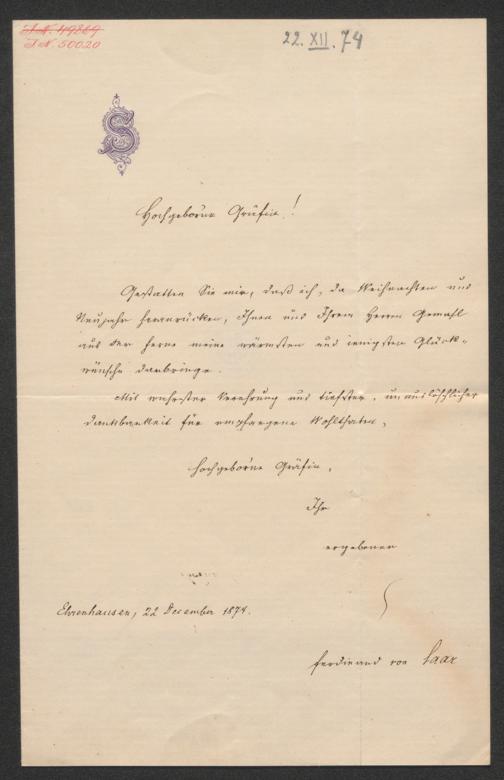 I.N. 49869
I.N. 50020
22. XII. 74
S
Hochgeborne Gräfin!
Gestatten Sie mir, daß ich, da Weihnachten und
Neujahr heranrücken, Ihnen und Ihrem Herrn Gemahl
aus der Ferne meine wärmsten und innigsten Glück-
wünsche darbringe.
Mit wahrster Verehrung und tiefster, unauslöschlicher
Dankbarkeit für empfangene Wohlthaten,
Hochgeborne Gräfin,
Ihr
ergebener
Ehrenhausen, 22 December 1874.
Ferdinand von Saar